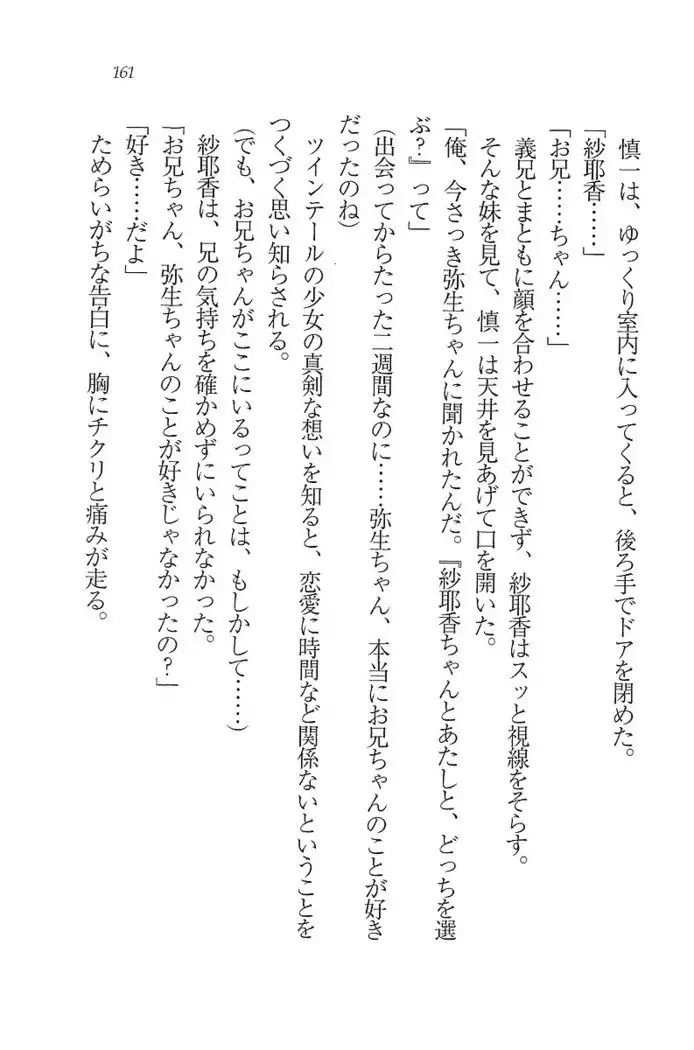 161
慎一は、ゆっくり室内に入ってくると、後ろ手でドアを閉めた。
「紗耶香……」
「お兄……ちゃん……」
義兄とまともに顔を合わせることができず、紗耶香はスッと視線をそらす。
そんな妹を見て、慎一は天井を見あげて口を開いた。
「俺、今さっき弥生ちゃんに聞かれたんだ。『紗耶香ちゃんとあたしと、どっちを選
ぶ？』って」
（出会ってからたった二週間なのに……弥生ちゃん、本当にお兄ちゃんのことが好き
だったのね）
ツインテールの少女の真剣な想いを知ると、恋愛に時間など関係ないということを
つくづく思い知らされる。
（でも、お兄ちゃんがここにいるってことは、もしかして……）
紗耶香は、兄の気持ちを確かめずにいられなかった。
「お兄ちゃん、弥生ちゃんのことが好きじゃなかったの？」
「好き……だよ」
ためらいがちな告白に、胸にチクリと痛みが走る。